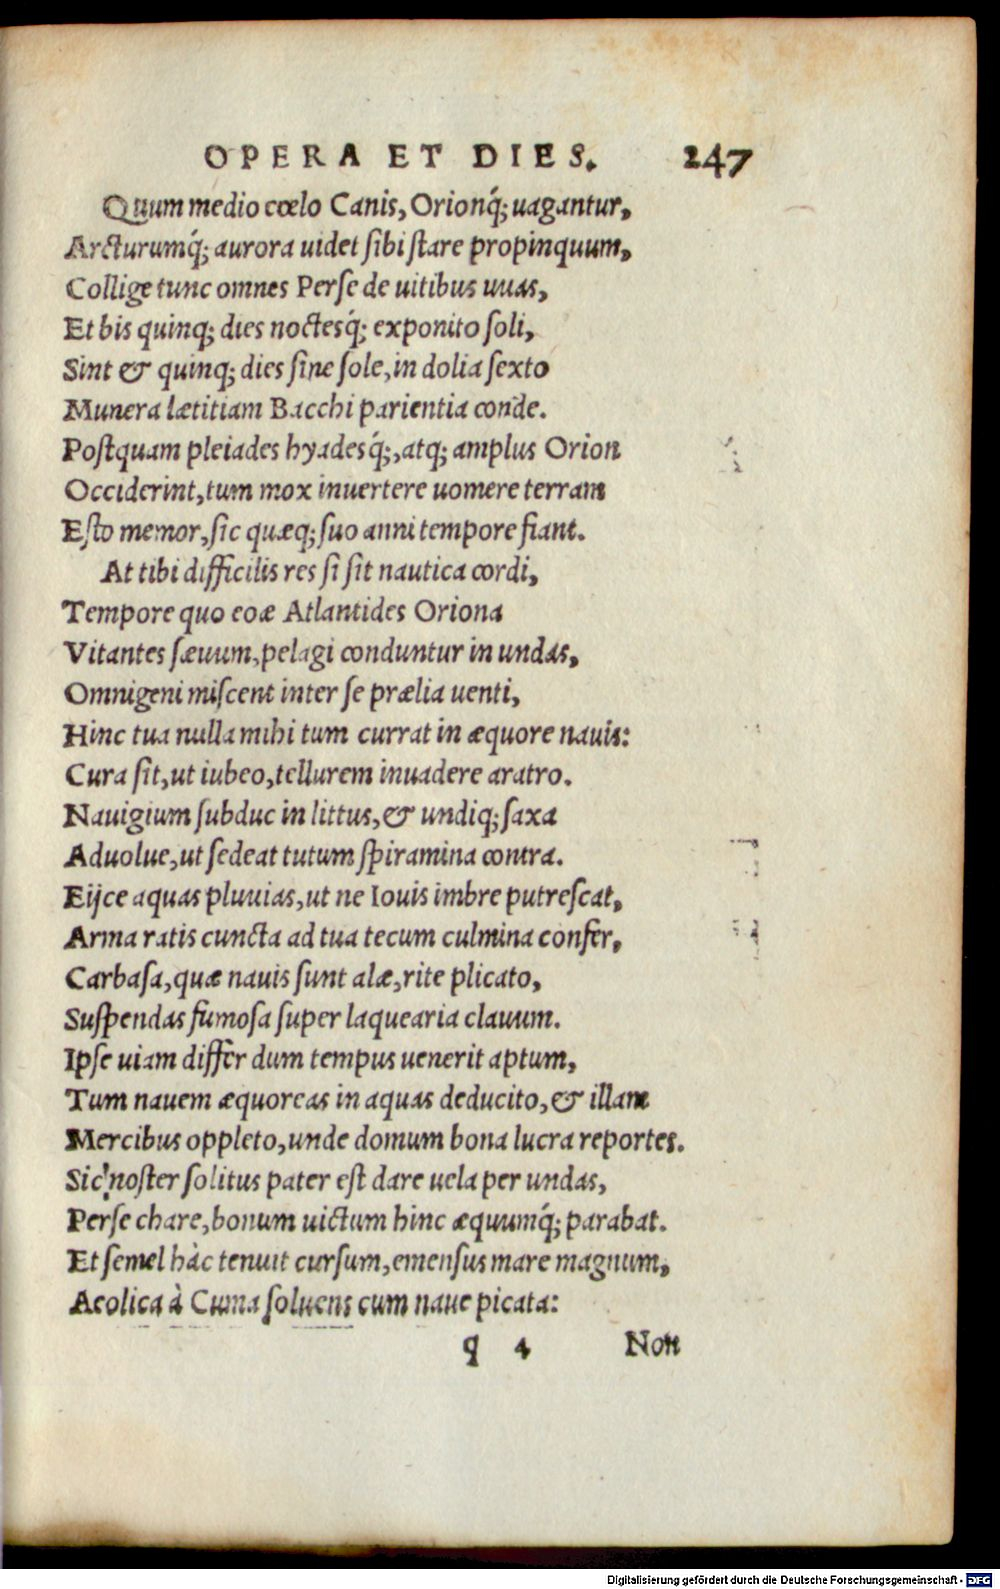 OPERA ET DIES. 247
Quum medio cœlo Canis, Orionq́; uagantur,
Arcturumq́; aurora uidet sibi stare propinquum,
Collige tunc omnes Perse de uitibus uuas,
Et bis quinq; dies noctesq́; exponito soli,
Sint & quinq; dies sine sole, in dolia sexto
Munera lætitiam Bacchi parientia conde.
Postquam pleiades hyadesq́;, atq; amplus Orion
Occiderint, tum mox inuertere uomere terram
Esto memor, sic quæq; suo anni tempore fiant.
At tibi difficilis res si sit nautica cordi,
Tempore quo eoæ Atlantides Oriona
Vitantes sæuum, pelagi conduntur in undas,
Omnigeni miscent inter se prælia uenti,
Hinc tua nulla mihi tum currat in æquore nauis:
Cura sit, ut iubeo, tellurem inuadere aratro.
Nauigium subduc in littus, & undiq; saxa
Aduolue, ut sedeat tutum spiramina contra.
Eijce aquas pluuias, ut ne Iouis imbre putrescat,
Arma ratis cuncta ad tua tecum culmina confer,
Carbasa, quæ nauis sunt alæ, rite plicato,
Suspendas fumosa super laquearia clauum.
Ipse uiam differ dum tempus uenerit aptum,
Tum nauem æquoreas in aquas deducito, & illam
Mercibus oppleto, unde domum bona lucra reportes.
Sic noster solitus pater est dare uela per undas,
Perse chare, bonum uictum hinc æquumq́; parabat.
Et semel hàc tenuit cursum, emensus mare magnum,
Aeolica à Cuma soluens cum naue picata:
q 4 Non
Digitalisierung gefördert durch die Deutsche Forschungsgemeinschaft - DFG